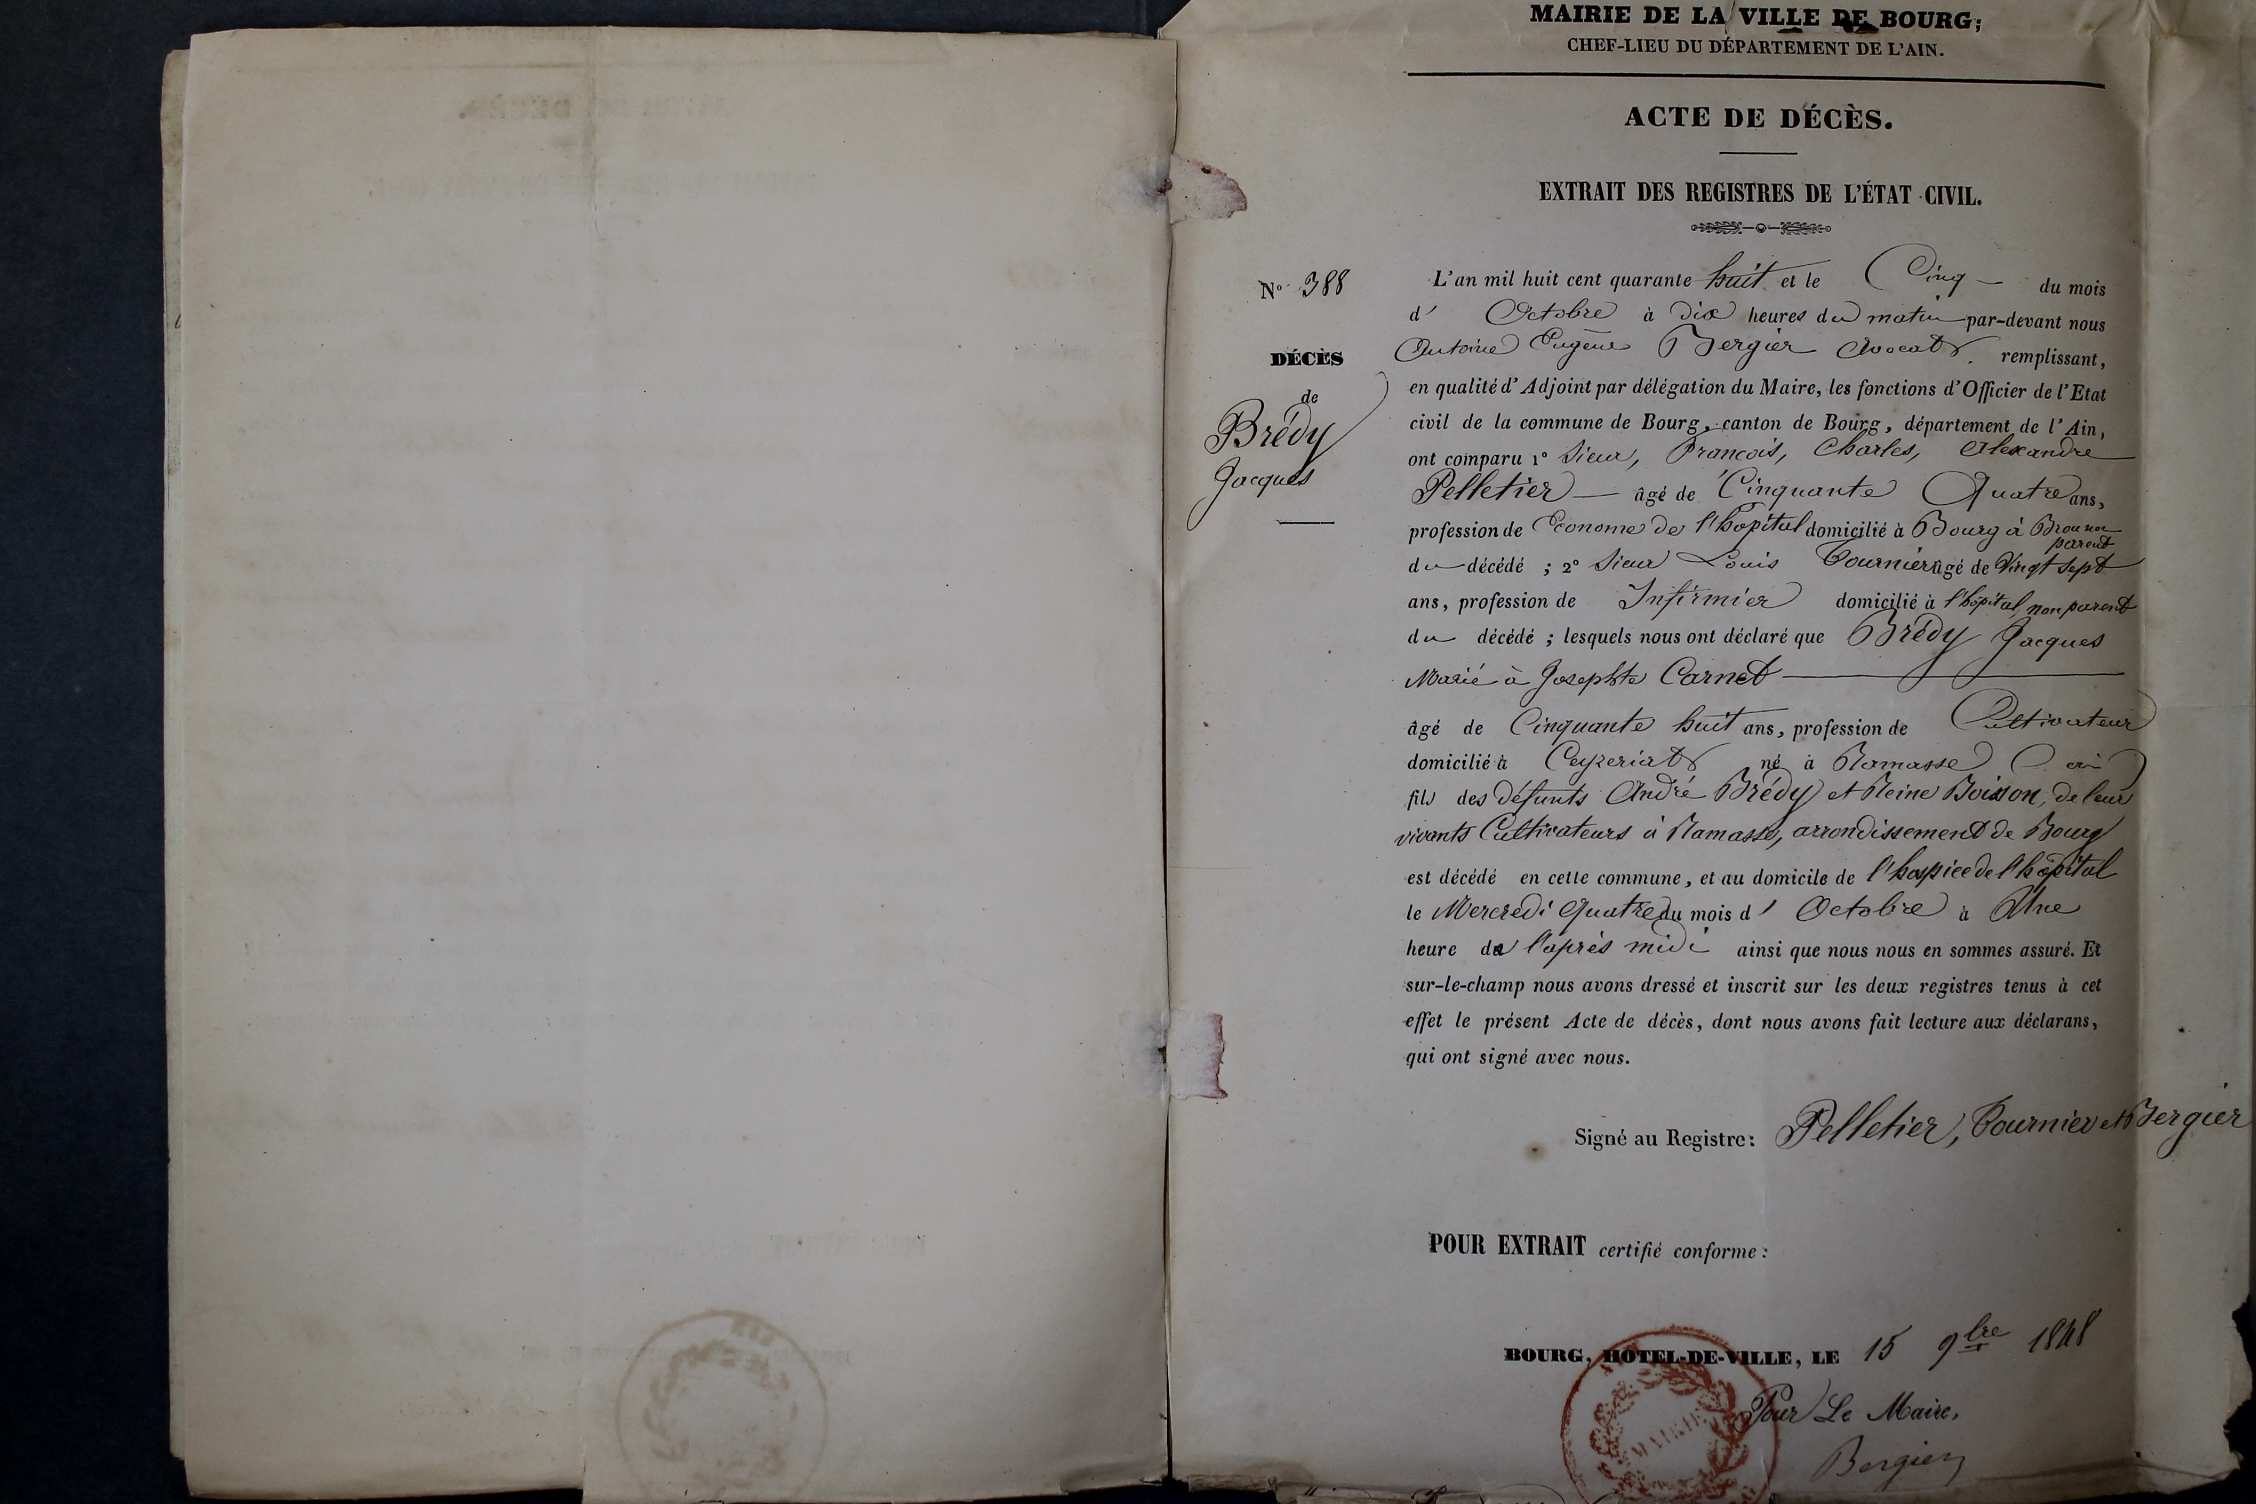 MAIRIE DE LA VILLE DE BOURG;
CHEF-LIEU DU DÉPARTEMENT DE L'AIN.
ACTE DE DÉCÈS.
EXTRAIT DES REGISTRES DE L'ÉTAT CIVIL.
N° 388
DÉCÈS
de
Brédy
Jacques
L'an mil huit cent quarante huit et le Cinq du mois
d' Octobre à dix heures du matin par-devant nous
Antoine Eugène Bergier Avocat remplissant,
en qualité d'Adjoint par délégation du Maire, les fonctions d'Officier de l'Etat
civil de la commune de Bourg, canton de Bourg, département de l'Ain,
ont comparu 1° Sieur, François, Charles, Alexandre
Pelletier âgé de Cinquante Quatre ans,
profession de Econome de l'hopital domicilié à Bourg à Brou non
parent
du décédé ; 2° Sieur Louis Tournier âgé de Vingt sept
ans, profession de Infirmier domicilié à l'hôpital, non parent
du décédé ; lesquels nous ont déclaré que Brédy Jacques
Marié à Josephte Carnet
âgé de Cinquante huit ans, profession de Cultivateur
domicilié à Ceyzeriat né à Ramasse
fils des défunts André Brédy et Reine Boisson, de leur
vivants Cultivateurs à Ramasse, arrondissement de Bourg
est décédé en cette commune, et au domicile de l'hospice de l'hôpital
le Mercredi Quatre du mois d' Octobre à Une
heure de l'après midi ainsi que nous nous en sommes assuré. Et
sur-le-champ nous avons dressé et inscrit sur les deux registres tenus à cet
effet le présent Acte de décès, dont nous avons fait lecture aux déclarans,
qui ont signé avec nous.
Signé au Registre: Pelletier, Tournier et Bergier
POUR EXTRAIT certifié conforme :
BOURG, HÔTEL-DE-VILLE, LE 15 9bre 1848
Pour Le Maire,
MAIRIE
Bergier